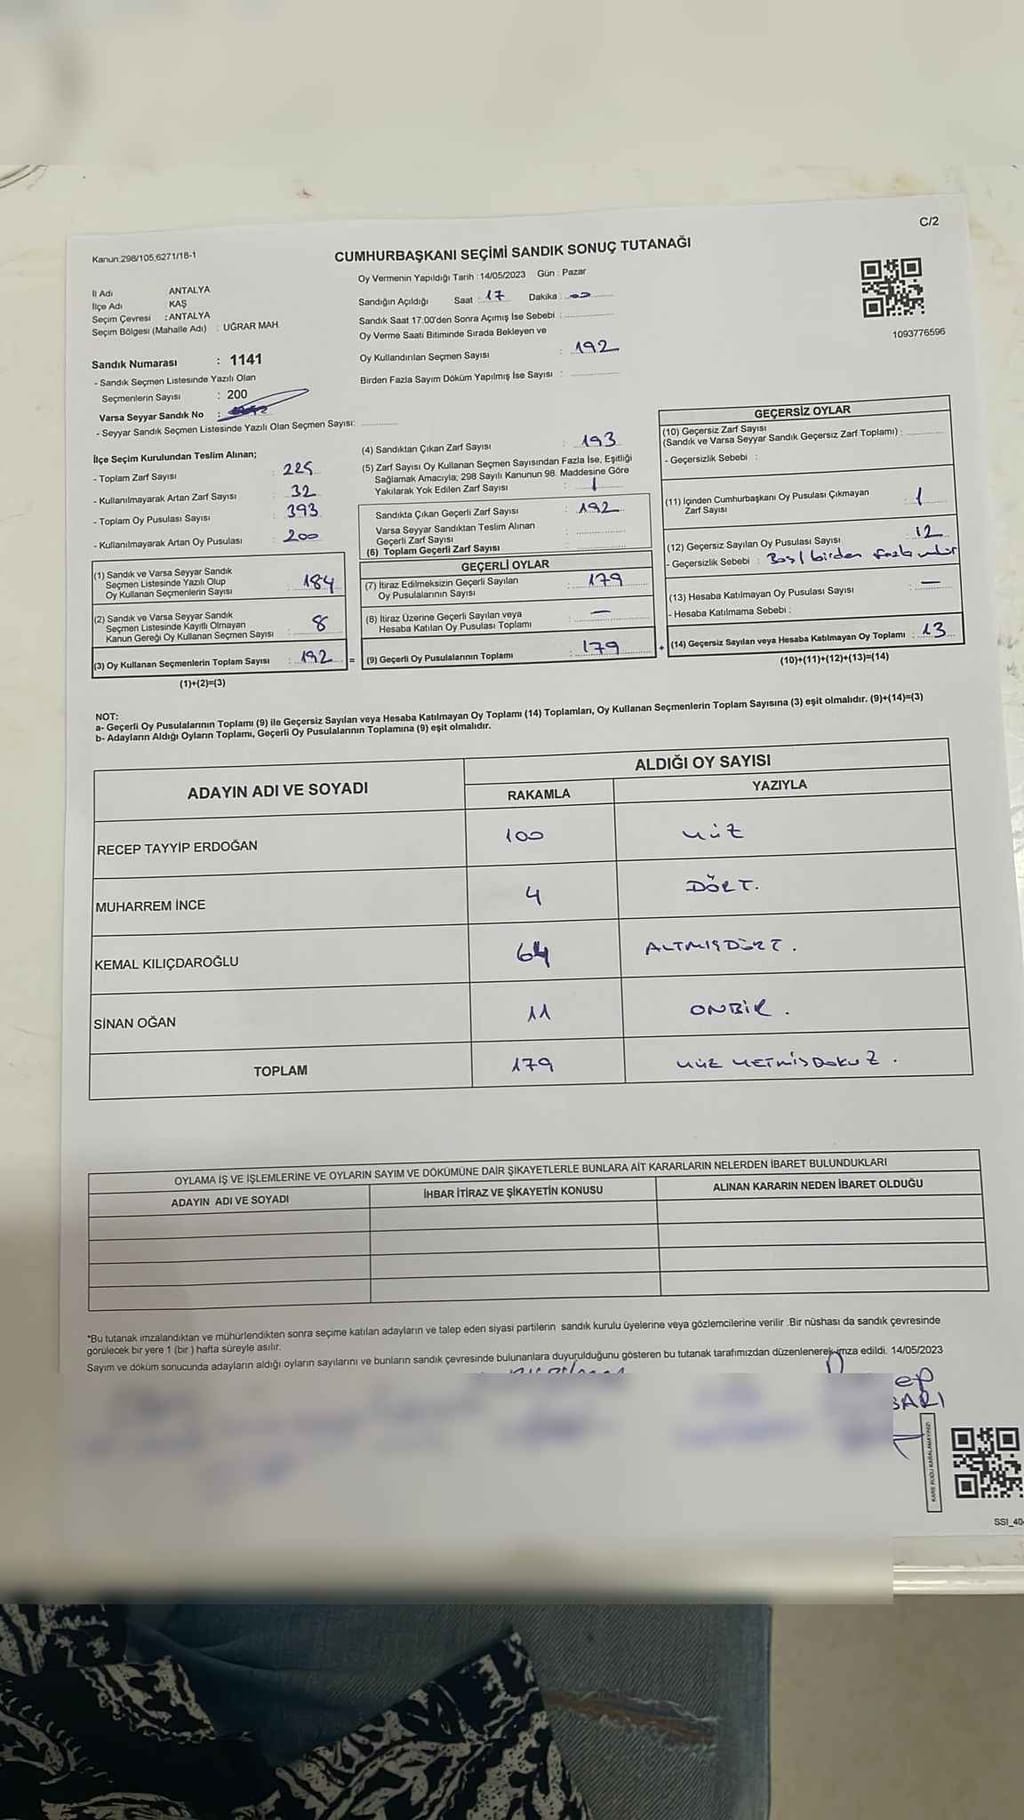 C/2
Kanun:298/105,6271/18-1
CUMHURBAŞKANI SEÇİMİ SANDIK SONUÇ TUTANAĞI
Oy Vermenin Yapıldığı Tarih : 14/05/2023 Gün : Pazar
İl Adı ANTALYA
İlçe Adı KAŞ
Seçim Çevresi : ANTALYA
Seçim Bölgesi (Mahalle Adı) : UĞRAR MAH.
Sandığın Açıldığı Saat : 17 Dakika : 00
Sandık Saat 17.00'den Sonra Açımış İse Sebebi :
Oy Verme Saati Bitiminde Sırada Bekleyen ve
Oy Kullandırılan Seçmen Sayısı : 192
Birden Fazla Sayım Döküm Yapılmış İse Sayısı :
1093776596
Sandık Numarası : 1141
- Sandık Seçmen Listesinde Yazılı Olan
Seçmenlerin Sayısı : 200
Varsa Seyyar Sandık No :
- Seyyar Sandık Seçmen Listesinde Yazılı Olan Seçmen Sayısı:
İlçe Seçim Kurulundan Teslim Alınan;
- Toplam Zarf Sayısı : 225
- Kullanılmayarak Artan Zarf Sayısı : 32
- Toplam Oy Pusulası Sayısı : 393
- Kullanılmayarak Artan Oy Pusulası : 200
(1) Sandık ve Varsa Seyyar Sandık
Seçmen Listesinde Yazılı Olup
Oy Kullanan Seçmenlerin Sayısı : 184
(2) Sandık ve Varsa Seyyar Sandık
Seçmen Listesinde Kayıtlı Olmayan
Kanun Gereği Oy Kullanan Seçmen Sayısı : 8
(3) Oy Kullanan Seçmenlerin Toplam Sayısı : 192 =
(1)+(2)=(3)
(4) Sandıktan Çıkan Zarf Sayısı : 193
(5) Zarf Sayısı Oy Kullanan Seçmen Sayısından Fazla İse, Eşitliği
Sağlamak Amacıyla; 298 Sayılı Kanunun 98. Maddesine Göre
Yakılarak Yok Edilen Zarf Sayısı : 1
Sandıkta Çıkan Geçerli Zarf Sayısı : 192
Varsa Seyyar Sandıktan Teslim Alınan
Geçerli Zarf Sayısı :
(6) Toplam Geçerli Zarf Sayısı
GEÇERLİ OYLAR
(7) İtiraz Edilmeksizin Geçerli Sayılan
Oy Pusulalarının Sayısı : 179
(8) İtiraz Üzerine Geçerli Sayılan veya
Hesaba Katılan Oy Pusulası Toplamı : —
(9) Geçerli Oy Pusulalarının Toplamı : 179 +
GEÇERSİZ OYLAR
(10) Geçersiz Zarf Sayısı
(Sandık ve Varsa Seyyar Sandık Geçersiz Zarf Toplamı) :
- Geçersizlik Sebebi :
(11) İçinden Cumhurbaşkanı Oy Pusulası Çıkmayan
Zarf Sayısı : 1
(12) Geçersiz Sayılan Oy Pusulası Sayısı : 12
- Geçersizlik Sebebi : Boş / birden fazla
(13) Hesaba Katılmayan Oy Pusulası Sayısı : —
- Hesaba Katılmama Sebebi :
(14) Geçersiz Sayılan veya Hesaba Katılmayan Oy Toplamı : 13
(10)+(11)+(12)+(13)=(14)
NOT:
a- Geçerli Oy Pusulalarının Toplamı (9) ile Geçersiz Sayılan veya Hesaba Katılmayan Oy Toplamı (14) Toplamları, Oy Kullanan Seçmenlerin Toplam Sayısına (3) eşit olmalıdır. (9)+(14)=(3)
b- Adayların Aldığı Oyların Toplamı, Geçerli Oy Pusulalarının Toplamına (9) eşit olmalıdır.
ADAYIN ADI VE SOYADI ALDIĞI OY SAYISI
RAKAMLA YAZIYLA
RECEP TAYYİP ERDOĞAN 100 YÜZ
MUHARREM İNCE 4 DÖRT.
KEMAL KILIÇDAROĞLU 64 ALTMIŞDÖRT.
SİNAN OĞAN 11 ONBİR.
TOPLAM 179 YÜZ YETMİŞ DOKUZ.
OYLAMA İŞ VE İŞLEMLERİNE VE OYLARIN SAYIM VE DÖKÜMÜNE DAİR ŞİKAYETLERLE BUNLARA AİT KARARLARIN NELERDEN İBARET BULUNDUKLARI
ADAYIN ADI VE SOYADI İHBAR İTİRAZ VE ŞİKAYETİN KONUSU ALINAN KARARIN NEDEN İBARET OLDUĞU
*Bu tutanak imzalandıktan ve mühürlendikten sonra seçime katılan adayların ve talep eden siyasi partilerin sandık kurulu üyelerine veya gözlemcilerine verilir .Bir nüshası da sandık çevresinde
görülecek bir yere 1 (bir ) hafta süreyle asılır.
Sayım ve döküm sonucunda adayların aldığı oyların sayılarını ve bunların sandık çevresinde bulunanlara duyurulduğunu gösteren bu tutanak tarafımızdan düzenlenerek imza edildi. 14/05/2023
KARE KODU KARALAMAYINIZ!
SSI_40